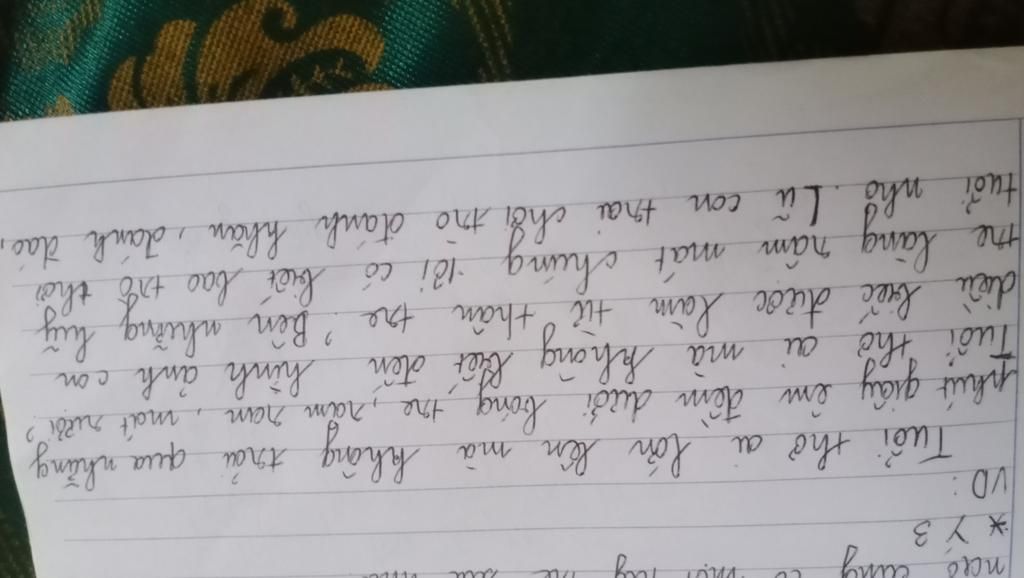 nào cũng có một luỹ tre
* Ý 3
VD:
Tuổi thơ ai lớn lên mà không trải qua những
phút giây êm đềm dưới bóng tre, mát rười?
Tuổi thơ ai mà không biết đến hình ảnh con
diều biếc được làm từ thân tre. Bên những luỹ
tre làng râm mát chúng tôi có biết bao trò thơi
tuổi nhỏ. Lũ con trai chơi trò đánh khăn, đánh đáo,